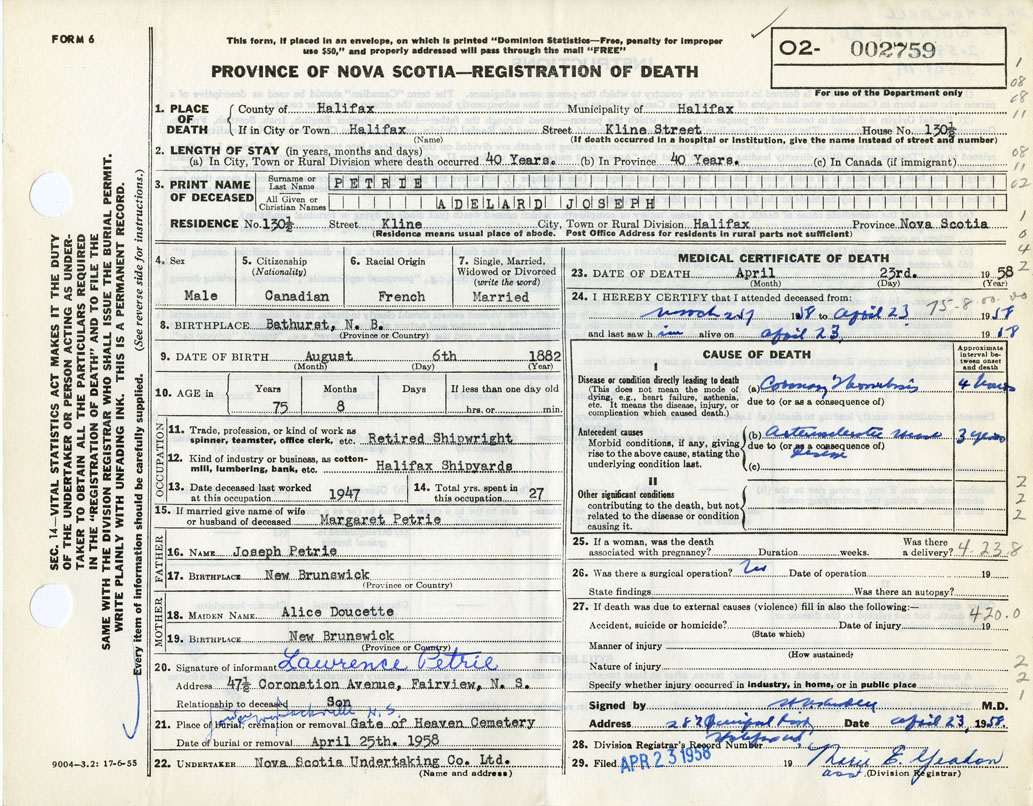 FORM 6
This form, if placed in an envelope, on which is printed "Dominion Statistics—Free, penalty for improper
use $50," and properly addressed will pass through the mail "FREE"
PROVINCE OF NOVA SCOTIA—REGISTRATION OF DEATH
02- 002759
For use of the Department only
SEC. 14—VITAL STATISTICS ACT MAKES IT THE DUTY
OF THE UNDERTAKER OR PERSON ACTING AS UNDER-
TAKER TO OBTAIN ALL THE PARTICULARS REQUIRED
IN THE "REGISTRATION OF DEATH" AND TO FILE THE
SAME WITH THE DIVISION REGISTRAR WHO SHALL ISSUE THE BURIAL PERMIT.
WRITE PLAINLY WITH UNFADING INK. THIS IS A PERMANENT RECORD.
Every item of information should be carefully supplied. (See reverse side for instructions.)
1. PLACE OF DEATH
County of Halifax Municipality of Halifax
If in City or Town Halifax Street Kline Street House No. 130½
(Name) (If death occurred in a hospital or institution, give the name instead of street and number)
2. LENGTH OF STAY (in years, months and days)
(a) In City, Town or Rural Division where death occurred 40 Years. (b) In Province 40 Years. (c) In Canada (if immigrant)
3. PRINT NAME OF DECEASED
Surname or Last Name PETRIE
All Given or Christian Names ADELARD JOSEPH
RESIDENCE No. 130½ Street Kline City, Town or Rural Division Halifax Province Nova Scotia
(Residence means usual place of abode. Post Office Address for residents in rural parts not sufficient)
4. Sex
Male
5. Citizenship
(Nationality)
Canadian
6. Racial Origin
French
7. Single, Married,
Widowed or Divorced
(write the word)
Married
8. BIRTHPLACE Bathurst, N. B.
(Province or Country)
9. DATE OF BIRTH August 6th 1882
(Month) (Day) (Year)
10. AGE in
Years Months Days If less than one day old
75 8 hrs. or min.
OCCUPATION
11. Trade, profession, or kind of work as
spinner, teamster, office clerk, etc. Retired Shipwright
12. Kind of industry or business, as cotton-
mill, lumbering, bank, etc. Halifax Shipyards
13. Date deceased last worked
at this occupation 1947
14. Total yrs. spent in
this occupation 27
15. If married give name of wife
or husband of deceased Margaret Petrie
FATHER
16. NAME Joseph Petrie
17. BIRTHPLACE New Brunswick
(Province or Country)
MOTHER
18. MAIDEN NAME Alice Doucette
19. BIRTHPLACE New Brunswick
(Province or Country)
20. Signature of informant Lawrence Petrie
Address 47½ Coronation Avenue, Fairview, N. S.
Relationship to deceased Son
Sackville N.S.
21. Place of burial, cremation or removal Gate of Heaven Cemetery
Date of burial or removal April 25th. 1958
22. UNDERTAKER Nova Scotia Undertaking Co. Ltd.
(Name and address)
9004—3.2: 17-6-55
MEDICAL CERTIFICATE OF DEATH
23. DATE OF DEATH April 23rd. 1958
(Month) (Day) (Year)
24. I HEREBY CERTIFY that I attended deceased from:
75-8
58 to april 23 1958
and last saw him alive on april 23, 1958
CAUSE OF DEATH
Approximate
interval be-
tween onset
and death
I
Disease or condition directly leading to death
(This does not mean the mode of
dying, e.g., heart failure, asthenia,
etc. It means the disease, injury, or
complication which caused death.)
(a) Coronary Thrombosis 4 hours
due to (or as a consequence of)
Antecedent causes
Morbid conditions, if any, giving
rise to the above cause, stating the
underlying condition last.
(b) 3 years
due to (or as a consequence of)
disease
(c)
II
Other significant conditions
contributing to the death, but not
related to the disease or condition
causing it.
25. If a woman, was the death
associated with pregnancy? Duration weeks.
Was there
a delivery?
4.23.8
26. Was there a surgical operation? Date of operation 19
State findings Was there an autopsy?
27. If death was due to external causes (violence) fill in also the following:—
420.0
Accident, suicide or homicide? Date of injury 19
(State which)
Manner of injury
(How sustained)
Nature of injury
Specify whether injury occurred in industry, in home, or in public place
Signed by M.D.
Address 287 Date april 23, 1958.
28. Division Registrar's Record Number
29. Filed APR 23 1958 19 E. Yeadon
asst. (Division Registrar)
1
08
08
11
08
11
02
1
0
4
2
2
2
2
2
2
1